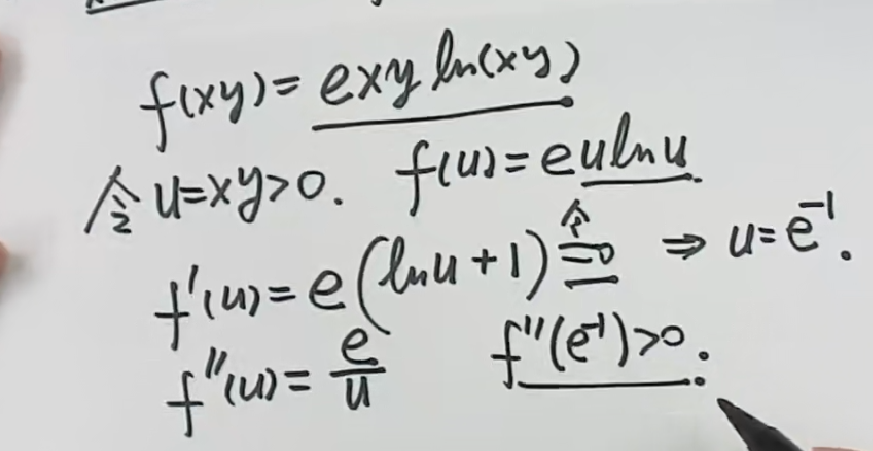 f(xy)=exy ln(xy)
令 u=xy>0. f(u)=eulnu
f'(u)=e(lnu+1) 令=0 ⇒ u=e⁻¹.
f''(u)=e/u f''(e⁻¹)>0.